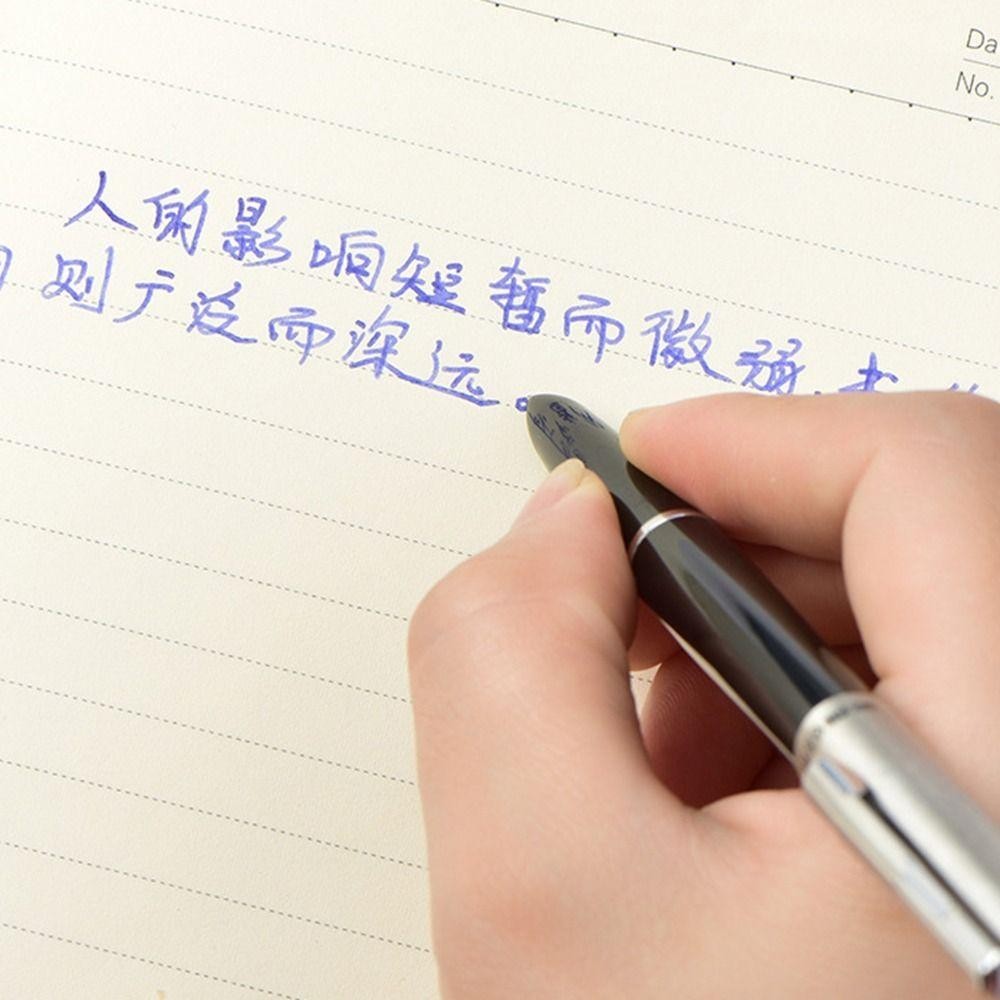 Da
No.
人的影响短暂而微弱,书
则广泛而深远。